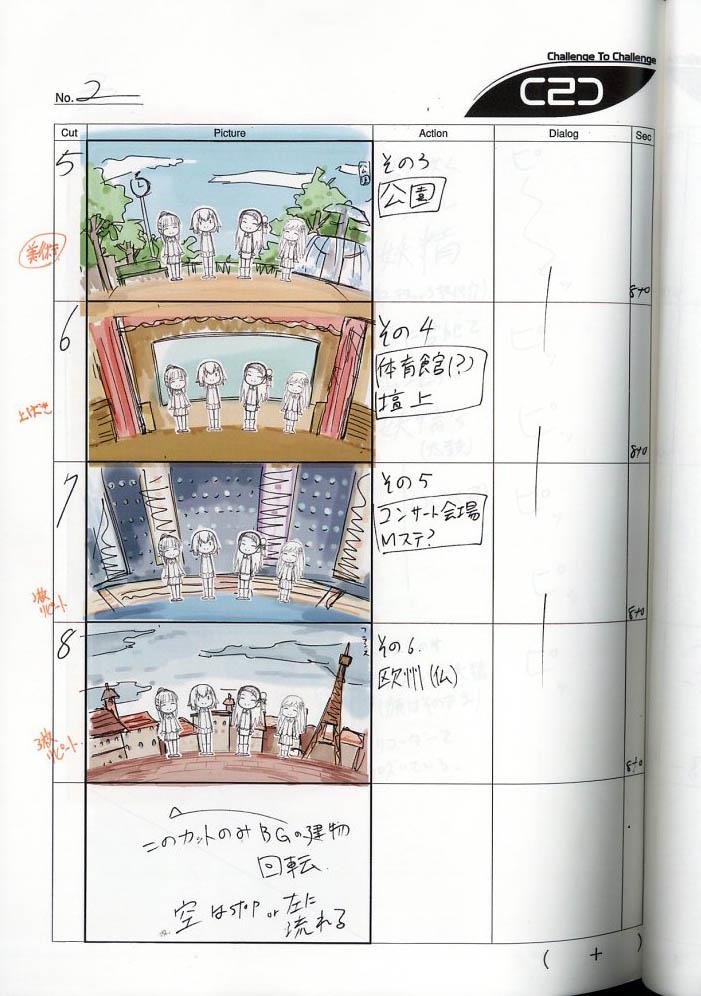 Challenge To Challenge
C2C
No. 2
Cut Picture Action Dialog Sec
5
公園
その3
公園
8+0
6
その4
体育館(?)
壇上
8+0
7
その5
コンサート会場
Mステ?
8+0
リピート
8
フランス
その6.
欧州(仏)
8+0
3枚
リピート
このカットのみBGの建物
回転.
空はstop or 左に
流れる
( + )